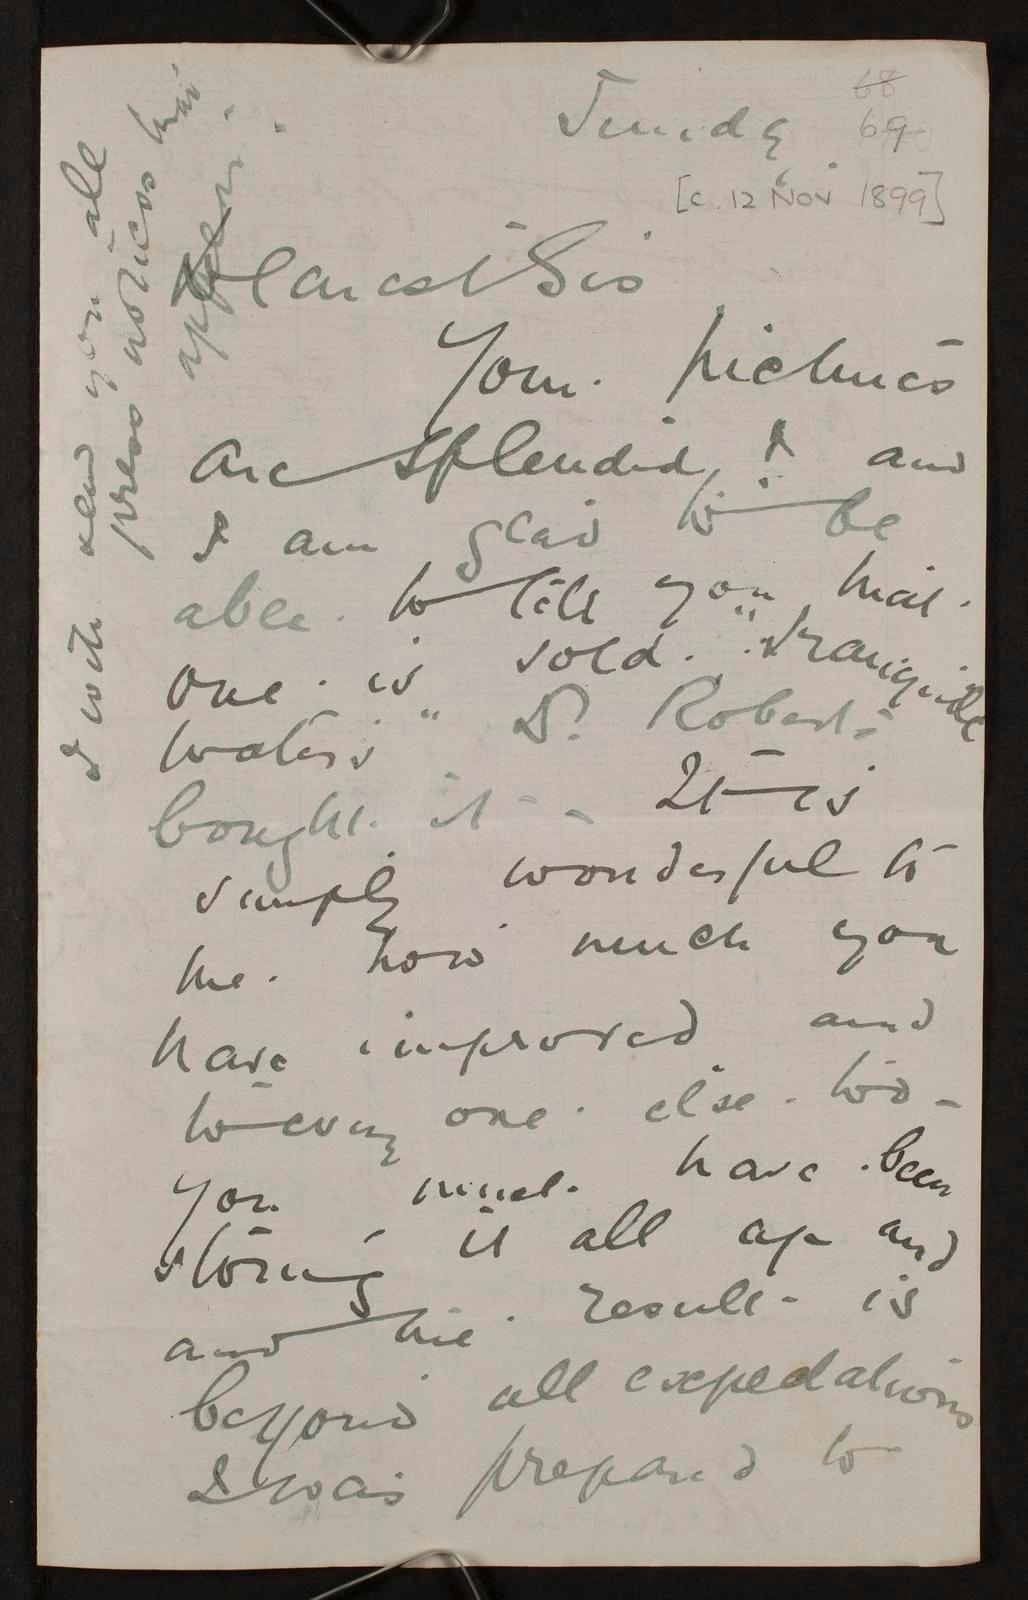 68
69
Sunday
[c. 12 Nov 1899]
Dearest Sis
Your pictures
are splendid, & and
I am glad to be
able to tell you that
one is sold. "Tranquille
waters" Dr Roberts
bought it - It is
simply wonderful to
me how much you
have improved and
to every one else too -
You must have been
storing it all up and
and the result is
beyond all expectations
I was prepared to
I will send you all
press notices that
appear.